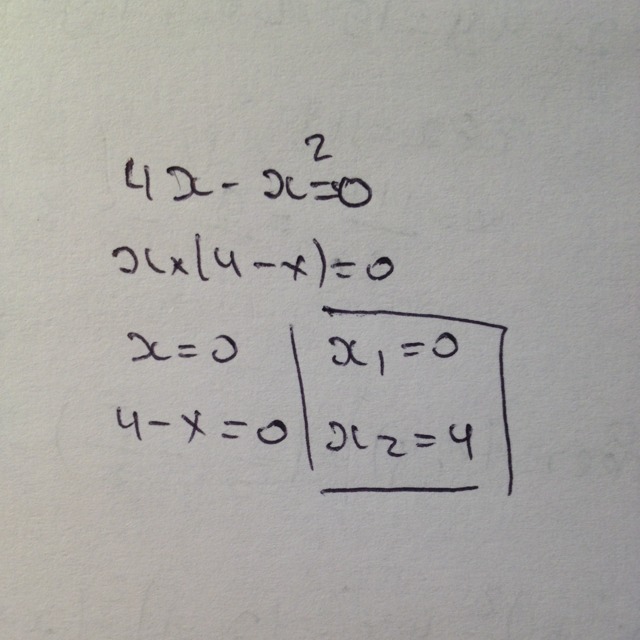 4x - x²=0
x×(4-x)=0
x=0 | x₁=0
4-x=0 | x₂=4